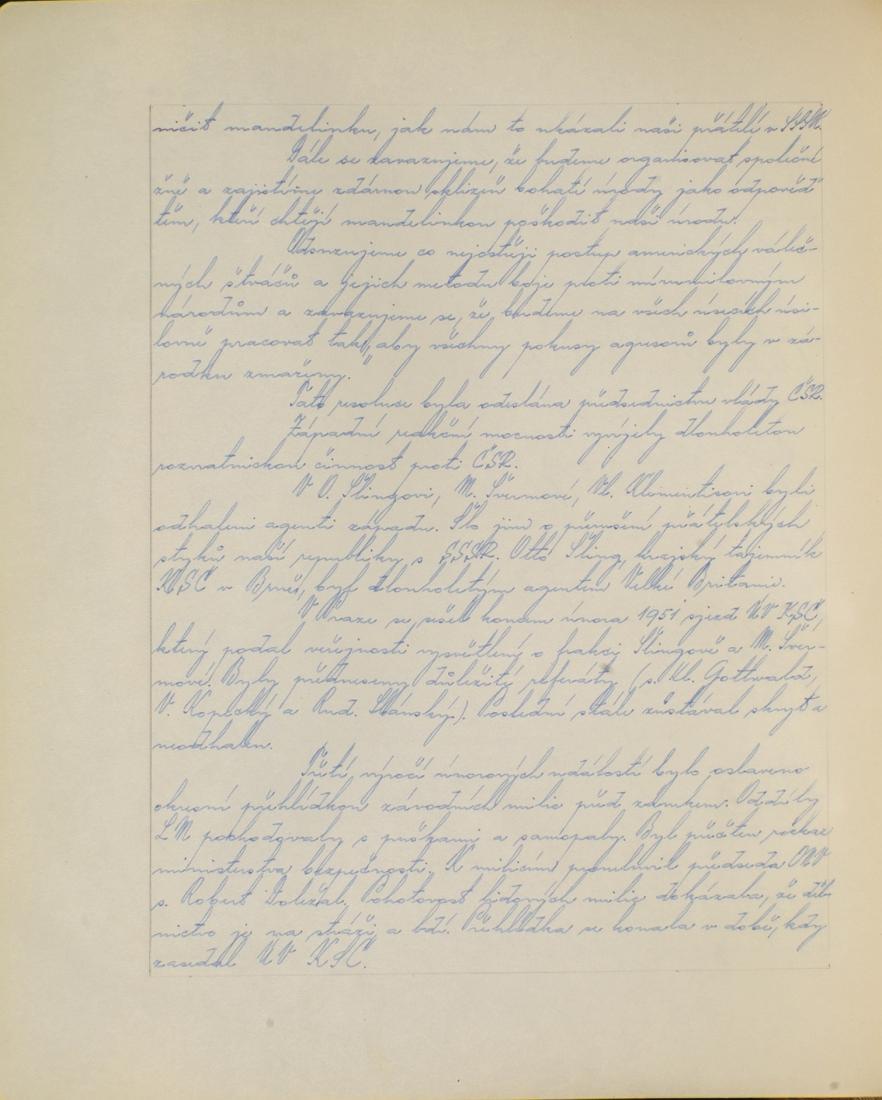 ničit mandelinku, jak nám to ukázali naši přátelé v SSM.
Dále se zavazujeme, že budeme organisovat společné
žně a zajistíme zdárnou sklizeň bohaté úrody jako odpověď
těm, kteří chtějí mandelinkou poškodit naši úrodu.
Odsuzujeme co nejostřeji postup amerických váleč-
ných štváčů a jejich metodu boje proti mírumilovným
národům a zavazujeme se, že budeme na všech úsecích úsi-
lovně pracovat tak, aby všechny pokusy agresorů byly v zá-
rodku zmařeny."
Tato resoluse byla odeslána předsednictvu vlády ČSR.
Západní reakční mocnosti vyvíjely dlouholetou
rozvratnickou činnost proti ČSR.
V O. Šlingovi, M. Švermové, Vl. Klementisovi byli
odhaleni agenti západu. Šlo jim o přerušení přátelských
styků naší republiky s SSSR. Otto Šling, krajský tajemník
KSČ v Brně, byl dlouholetým agentem Velké Britanie.
V Praze se sešel koncem února 1951 sjezd ÚV KSČ,
který podal veřejnosti vysvětlení o frakci Šlingově a M. Šver-
mové. Byly předneseny důležité referáty (s. Kl. Gottwald,
V. Kopecký a Rud. Slánský.). Poslední stále zůstával skryt a
neodhalen.
Třetí výročí únorových událostí bylo oslaveno
okresní přehlídkou závodních milic před zámkem. Oddíly
LM pochodovaly s puškami a samopaly. Byl přečten rozkaz
ministerstva bezpečnosti. K milicím promluvil předseda ONV
s. Robert Doležal. Pohotovost lidových milic dokázala, že děl-
nictvo je na stráži a bdí. Přehlídka se konala v době, kdy
zasedal ÚV KSČ.